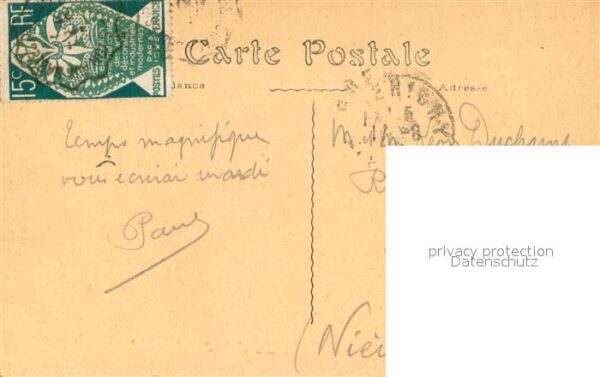 15c RF
exposition
internationale
des arts
décoratifs
et industriels
modernes
PARIS
POSTES FRANCE
Carte Postale
dance
Adresse
temps magnifique
vous écrirai mardi
Paul
M. Mme Léon Duchamp
R
(Niè
privacy protection
Datenschutz